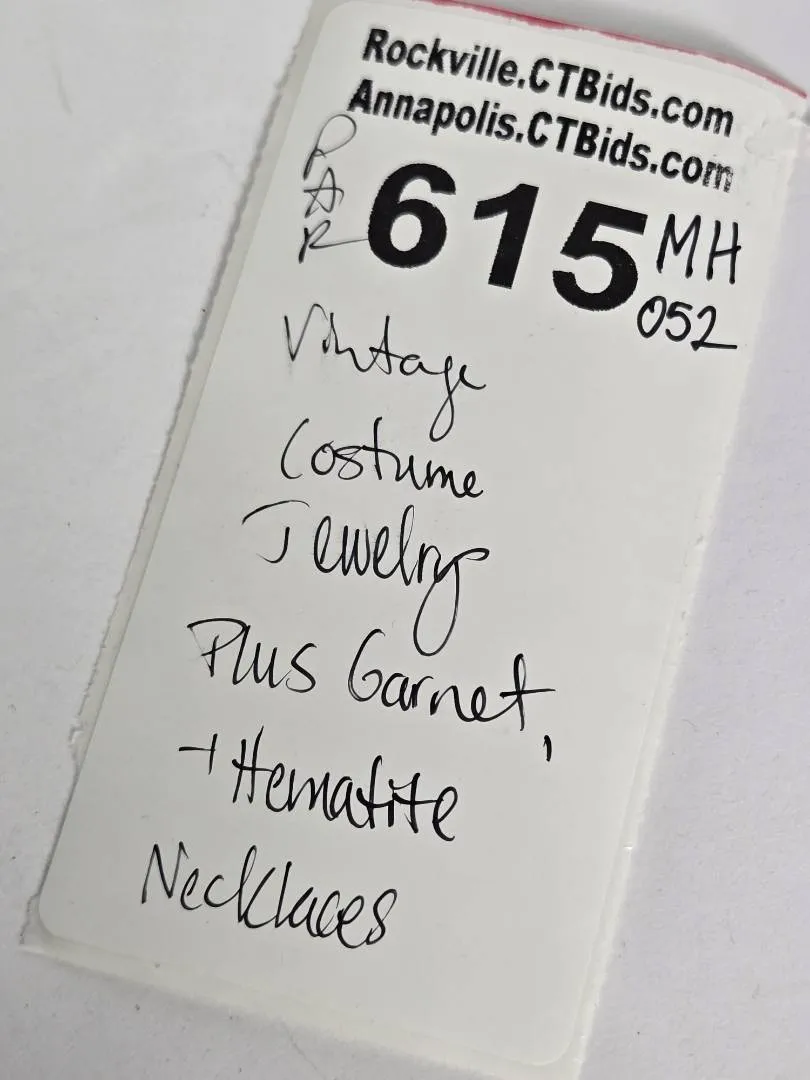 Rockville.CTBids.com
Annapolis.CTBids.com
PAR 615 MH
052
Vintage
Costume
Jewelry
Plus Garnet,
+ Hematite
Necklaces